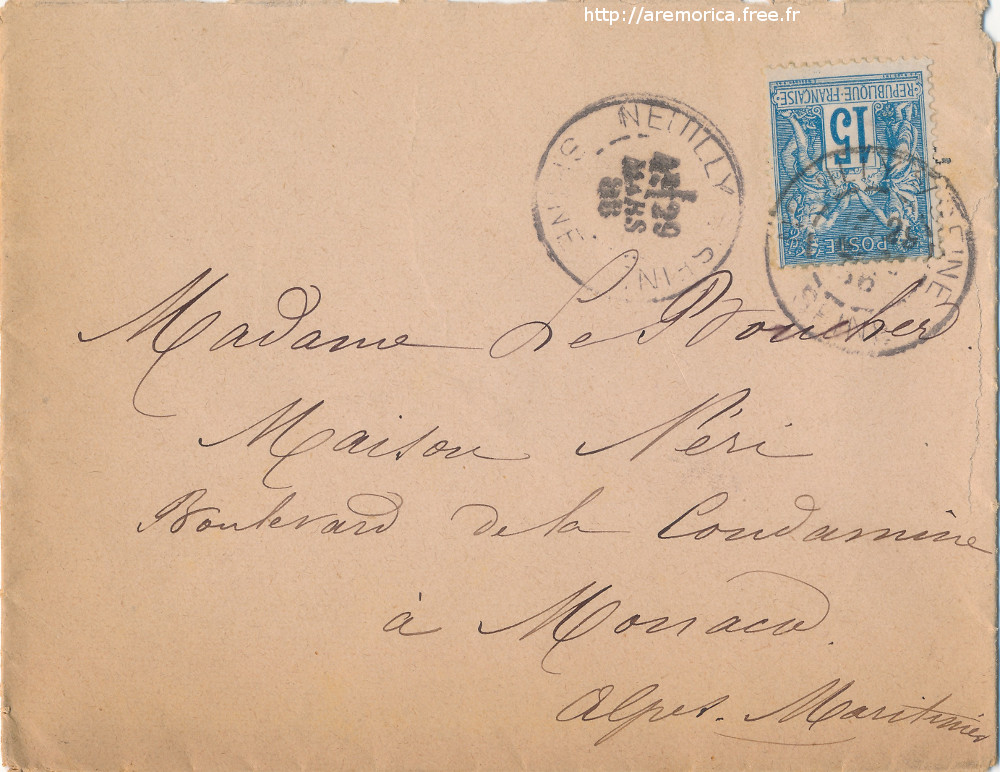 http://aremorica.free.fr
REPUBLIQUE-FRANÇAISE
15
POSTE
NEUILLY
29
MARS
88
Madame Le Boucher
Maison Néri
Boulevard de la Condamine
à Monaco.
Alpes-Maritimes